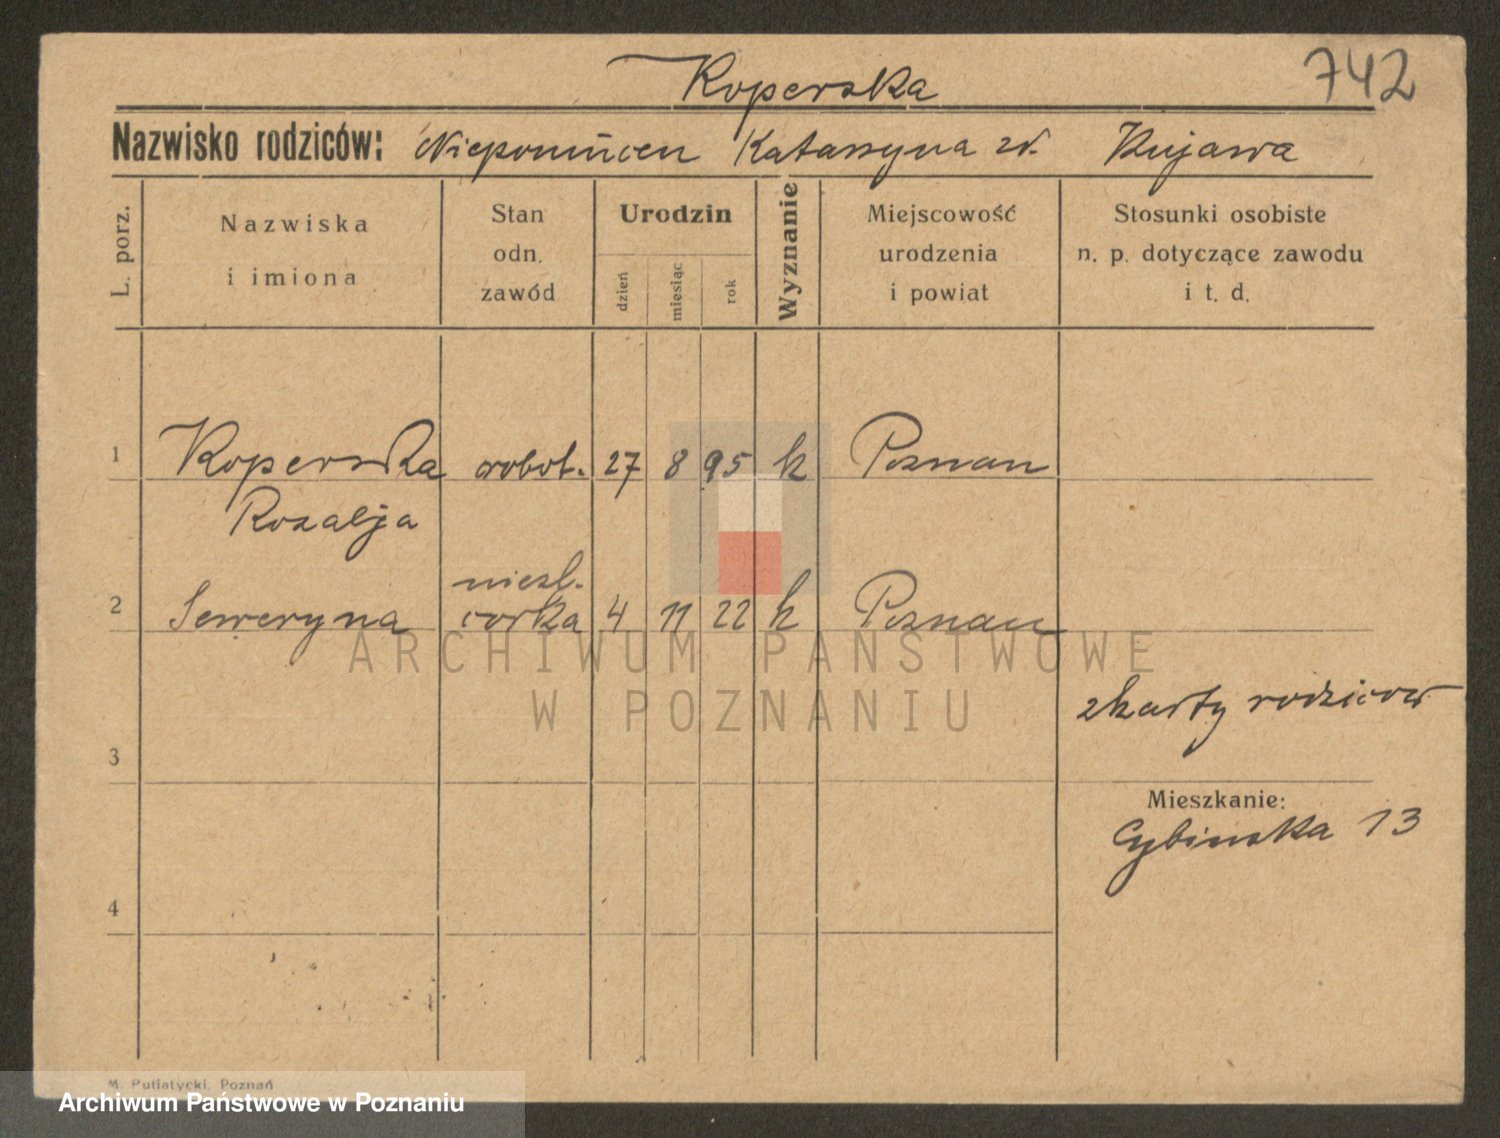 742
Koperska
Nazwisko rodziców: Niepomucen Katarzyna zd. Kujawa
L. porz.
Nazwiska i imiona
Stan odn. zawód
Urodzin
dzień
miesiąc
rok
Wyznanie
Miejscowość urodzenia i powiat
Stosunki osobiste n. p. dotyczące zawodu i t. d.
1 Koperska robot. 27 8 95 k Poznan
Rozalja
niezl.
2 Seweryna corka 4 11 22 k Poznan
ARCHIWUM PAŃSTWOWE
W POZNANIU
zkarty rodzicow
3
Mieszkanie:
Cybinska 13
4
M. Putiatycki, Poznań
Archiwum Państwowe w Poznaniu